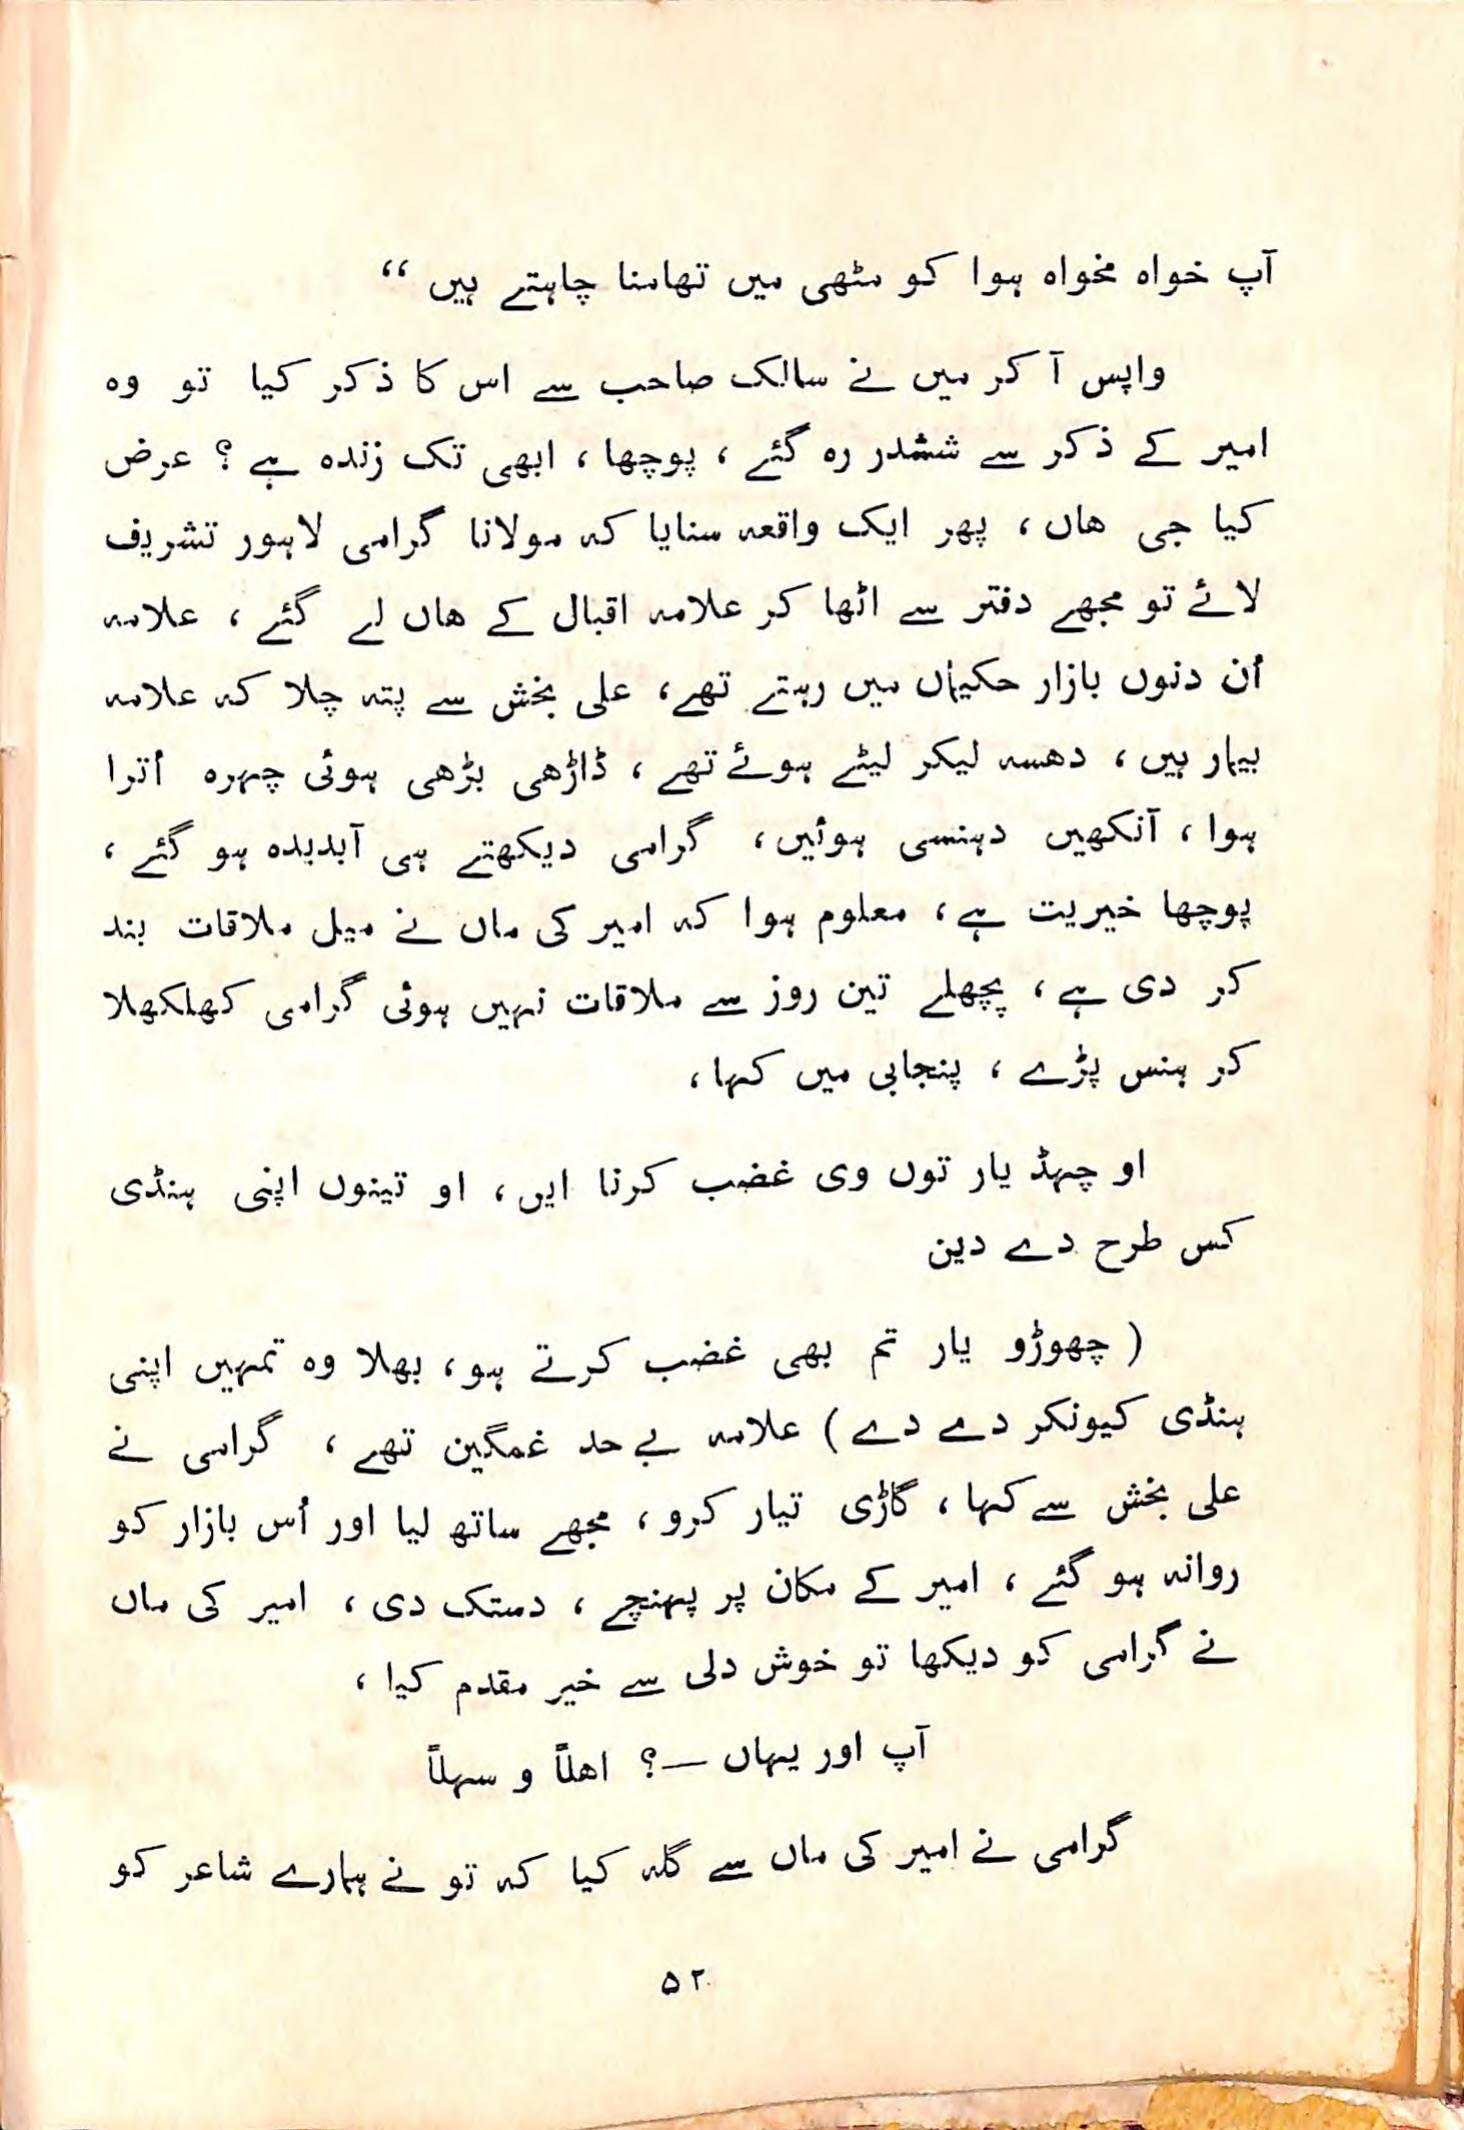 آپ خواہ مخواہ ہوا کو مٹھی میں تھامنا چاہتے ہیں “
واپس آ کر میں نے سالک صاحب سے اس کا ذکر کیا تو وہ
امیر کے ذکر سے ششدر رہ گئے ، پوچھا ، ابھی تک زندہ ہے ؟ عرض
کیا جی ھاں ، پھر ایک واقعہ سنایا کہ مولانا گرامی لاہور تشریف
لائے تو مجھے دفتر سے اٹھا کر علامہ اقبال کے ھاں لے گئے ، علامہ
اُن دنوں بازار حکیماں میں رہتے تھے ، علی بخش سے پتہ چلا کہ علامہ
بیمار ہیں ، دھسہ لیکر لیٹے ہوئے تھے ، ڈاڑھی بڑھی ہوئی چہرہ اُترا
ہوا ، آنکھیں دہنسی ہوئیں ، گرامی دیکھتے ہی آبدیدہ ہو گئے ،
پوچھا خیریت ہے ، معلوم ہوا کہ امیر کی ماں نے میل ملاقات بند
کر دی ہے ، پچھلے تین روز سے ملاقات نہیں ہوئی گرامی کھلکھلا
کر ہنس پڑے ، پنجابی میں کہا ،
او چہڈ یار توں وی غضب کرنا ایں ، او تینوں اپنی ہنڈی
کس طرح دے دین
( چھوڑو یار تم بھی غضب کرتے ہو ، بھلا وہ تمہیں اپنی
ہنڈی کیونکر دے دے ) علامہ بے حد غمگین تھے ، گرامی نے
علی بخش سے کہا ، گاڑی تیار کرو ، مجھے ساتھ لیا اور اُس بازار کو
روانہ ہو گئے ، امیر کے مکان پر پہنچے ، دستک دی ، امیر کی ماں
نے گرامی کو دیکھا تو خوش دلی سے خیر مقدم کیا ،
آپ اور یہاں —؟ اھلاً و سہلاً
گرامی نے امیر کی ماں سے گلہ کیا کہ تو نے ہمارے شاعر کو
۵۲